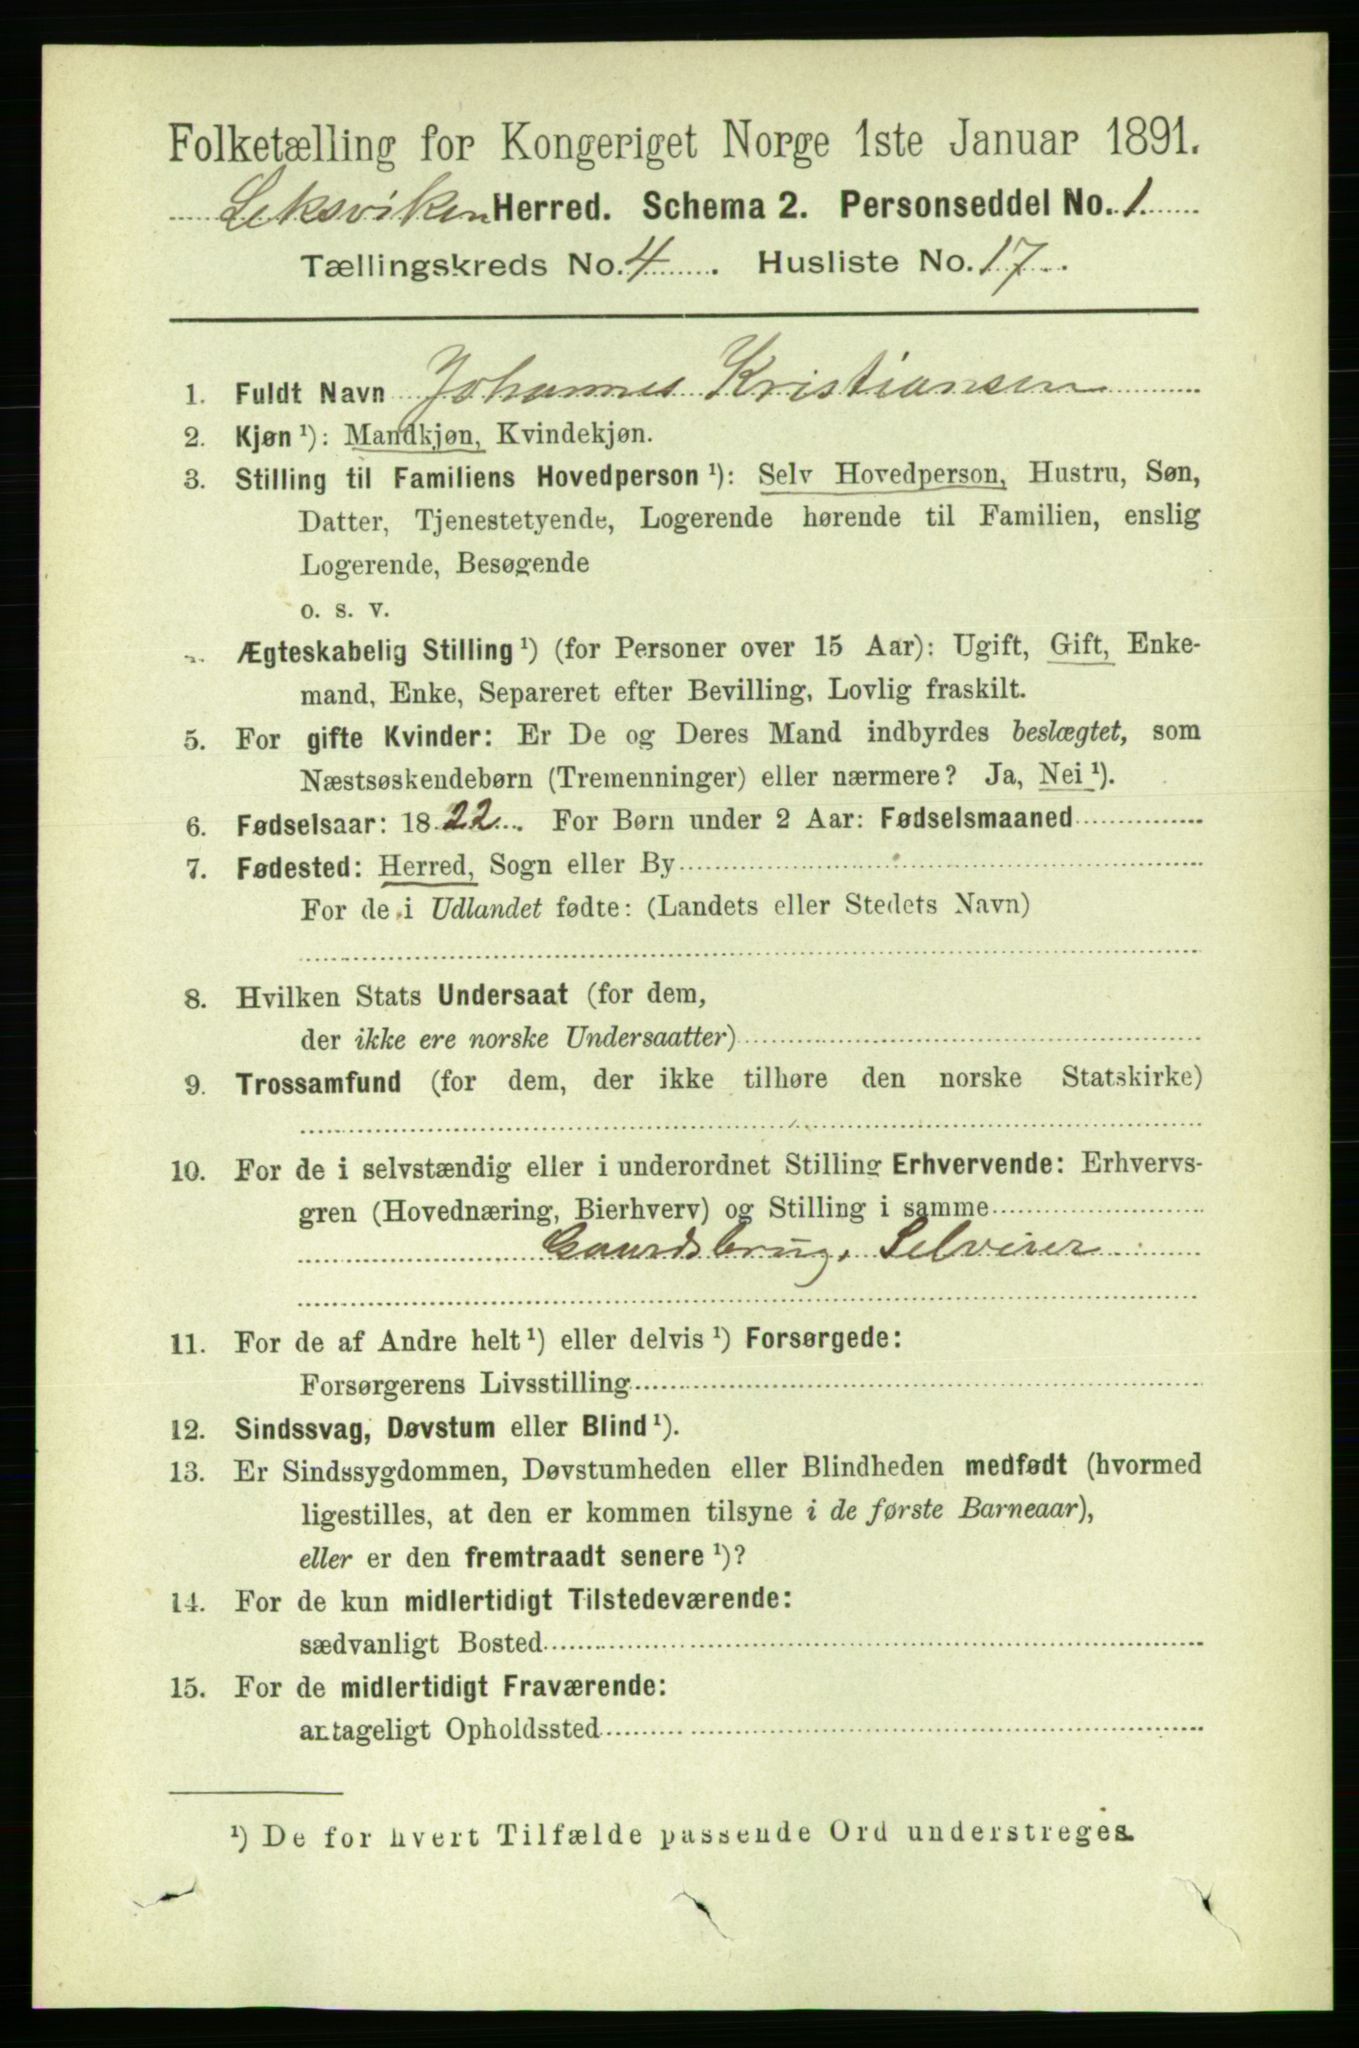 Folketælling for Kongeriget Norge 1ste Januar 1891.
Leksviken Herred. Schema 2. Personseddel No. 1.
Tællingskreds No. 4. Husliste No. 17.
1. Fuldt Navn Johannes Kristiansen
2. Kjøn ¹): Mandkjøn, Kvindekjøn.
3. Stilling til Familiens Hovedperson ¹): Selv Hovedperson, Hustru, Søn,
Datter, Tjenestetyende, Logerende hørende til Familien, enslig
Logerende, Besøgende
o. s. v.
Ægteskabelig Stilling ¹) (for Personer over 15 Aar): Ugift, Gift, Enke-
mand, Enke, Separeret efter Bevilling, Lovlig fraskilt.
5. For gifte Kvinder: Er De og Deres Mand indbyrdes beslægtet, som
Næstsøskendebørn (Tremenninger) eller nærmere? Ja, Nei ¹).
6. Fødselsaar: 1822. For Børn under 2 Aar: Fødselsmaaned
7. Fødested: Herred, Sogn eller By
For de i Udlandet fødte: (Landets eller Stedets Navn)
8. Hvilken Stats Undersaat (for dem,
der ikke ere norske Undersaatter)
9. Trossamfund (for dem, der ikke tilhøre den norske Statskirke)
10. For de i selvstændig eller i underordnet Stilling Erhvervende: Erhvervs-
gren (Hovednæring, Bierhverv) og Stilling i samme
Gaardsbrug, Selveier
11. For de af Andre helt ¹) eller delvis ¹) Forsørgede:
Forsørgerens Livsstilling
12. Sindssvag, Døvstum eller Blind ¹).
13. Er Sindssygdommen, Døvstumheden eller Blindheden medfødt (hvormed
ligestilles, at den er kommen tilsyne i de første Barneaar),
eller er den fremtraadt senere ¹)?
14. For de kun midlertidigt Tilstedeværende:
sædvanligt Bosted
15. For de midlertidigt Fraværende:
antageligt Opholdssted
¹) De for hvert Tilfælde passende Ord understreges.